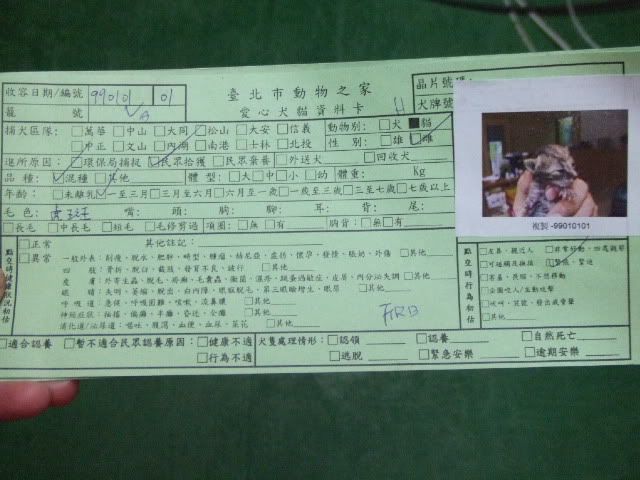 臺北市動物之家
晶片號碼:
收容日期/編號 990101 01
愛心犬貓資料卡
犬牌號
籠 號
捕犬區隊: □萬華 □中山 □大同 □松山 □大安 □信義 動物別: □犬 ■貓
□中正 □文山 □內湖 □南港 □士林 □北投 性 別: □雄 □雌
進所原因: □環保局捕捉 □民眾拾獲 □民眾棄養 □外送犬 □回收犬
品 種: □混種 □其他 體 型: □大 □中 □小 □幼 體重: Kg
年齡: □未離乳 □一至三月 □三月至六月 □六月至一歲 □一歲至三歲 □三至七歲 □七歲以上
毛 色: 虎斑 嘴: 頭: 胸: 腳: 耳: 背: 尾:
□長毛 □中長毛 □短毛 □毛修剪過 項圈: □無 □有 胸背: □無 □有
複製 -99010101
點交時健康狀況初估
□正常 其他註記:
□異常 一般外表: 削瘦、脫水、肥胖、畸型、腫瘤、赫尼亞、虛弱、懷孕、發情、脹奶、外傷 □其他
四 肢: 骨折、脫臼、截肢、發育不良、跛行 □其他
皮 膚: 外寄生蟲、脫毛、疥癬、毛囊蟲、黴菌、濕疹、跳蚤過敏症、皮屑、內分泌失調 □其他
眼 睛: 失明、萎縮、脫出、白內障、眼瞼脫毛、第三眼瞼增生、眼屎 □其他
呼 吸 道: 急促、呼吸困難、咳嗽、流鼻膿 □其他
神經症狀: 抽搐、偏癱、半癱、昏迷、全癱 □其他
消化道/泌尿道: 嘔吐、腹瀉、血便、血尿、菜花 □其他
FRB
點交時行為初估
□友善、親近人 □非常好動、四處觀察
□可碰觸及撫摸 □緊張、緊迫
□害羞、畏縮、不想移動
□企圖咬人/主動攻擊
□吠叫、哀號、發出威脅聲
□其他
□適合認養 □暫不適合民眾認養原因: □健康不適 犬隻處理情形: □認領 □認養 □自然死亡
□行為不適 □逃脫 □緊急安樂 □逾期安樂